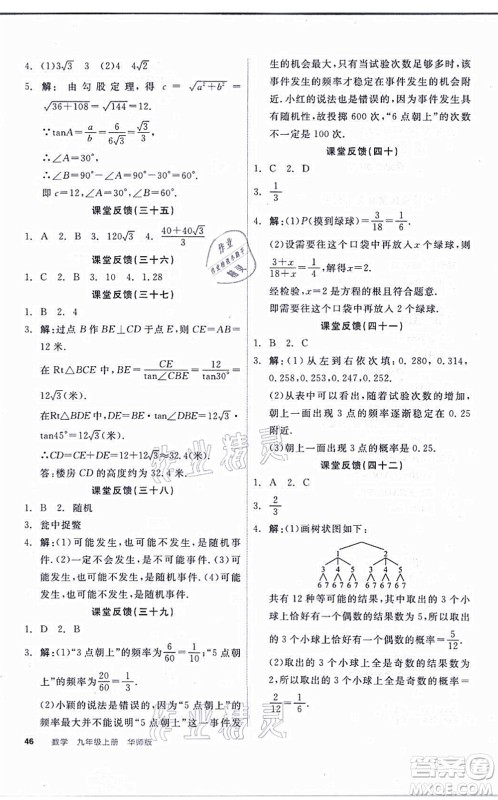 4. (1)3√3 (2)4 4√3
5. 解:由勾股定理,得 c=√(a²+b²)=
√(36+108)=√144=12.
∵tanA=a/b=6/(6√3)=√3/3,
∴∠A=30°.
即 c=12,∠A=30°.
课堂反馈(三十五)
1. A 2. B 3. 120 4. (40+40√3)/3
课堂反馈(三十六)
1. C 2. B 3. 10 4. 1.28
课堂反馈(三十七)
3. 解:过点 B 作 BE⊥CD 于点 E,则 DE=AB=
12 米.
在 Rt△BCE 中,BE=CE/tan∠CBE=12/tan30°=
12√3(米).
在 Rt△BDE 中,DE=BE·tan∠DBE=12√3·
tan45°=12√3(米).
∴CD=CE+DE=12+12√3≈32.4(米).
答:楼房 CD 的高度约为 32.4 米.
课堂反馈(三十八)
1. B 2. 随机
3. 瓮中捉鳖
4. 解:(1)可能发生,也可能不发生,是随机事
件.(2)一定不会发生,是不可能事件.(3)可
能发生,也可能不发生,是随机事件.
课堂反馈(三十九)
1. D 2. B
3. 解:(1)“3 点朝上”的频率为6/60=1/10,“5 点朝
上”的频率为20/60=1/3.
(2)小颖的说法是错误的,因为“5 点朝上”的
频率最大并不能说明“5 点朝上”这一事件发
46 数学 九年级上册 华师版
生的机会最大,因为只有当试验次数足够多时,该
事件发生的频率才稳定在事件发生的机会附
近.小红的说法也是错误的,因为事件发生具
有随机性,故投掷 600 次,“6 点朝上”的次数
不一定是 100 次.
课堂反馈(四十)
1. C 2. D
3. 1/3
4. 解:(1)P(摸到绿球)=3/18=1/6.
(2)设需要在这个口袋中再放入 x 个绿球,得
(3+x)/(18+x)=1/4,解得x=2.
经检验,x=2 符合题意.
即需要在这个口袋中再放入 2 个绿球.
课堂反馈(四十一)
1. B 2. C
3. 解:(1)从左到右依次填:0.280,0.314,
0.258,0.253,0.251,0.250.
(2)从表中可以看出,随着试验次数的增加,
朝上一面出现 3 点的频率逐渐稳定在 0.25
附近.
(3)朝上一面出现 3 点的概率是 0.25
课堂反馈(四十二)
1. A 2. C
3. 2/3
4. 解:(1)画树状图如下:
1 2
3 4 5 3 4 5
6 7 6 7 6 7 6 7 6 7 6 7
共有 12 种等可能的结果数,其中取出的 3 个
小球上恰好有两个偶数的结果数为 5,
所以取出的 3 个小球上恰好有两个偶数的概率是5/12.
(2)取出的 3 个小球上全是奇数的结果数为
2,所以取出的 3 个小球上全是奇数的概率是
2/12=1/6.
作业精灵